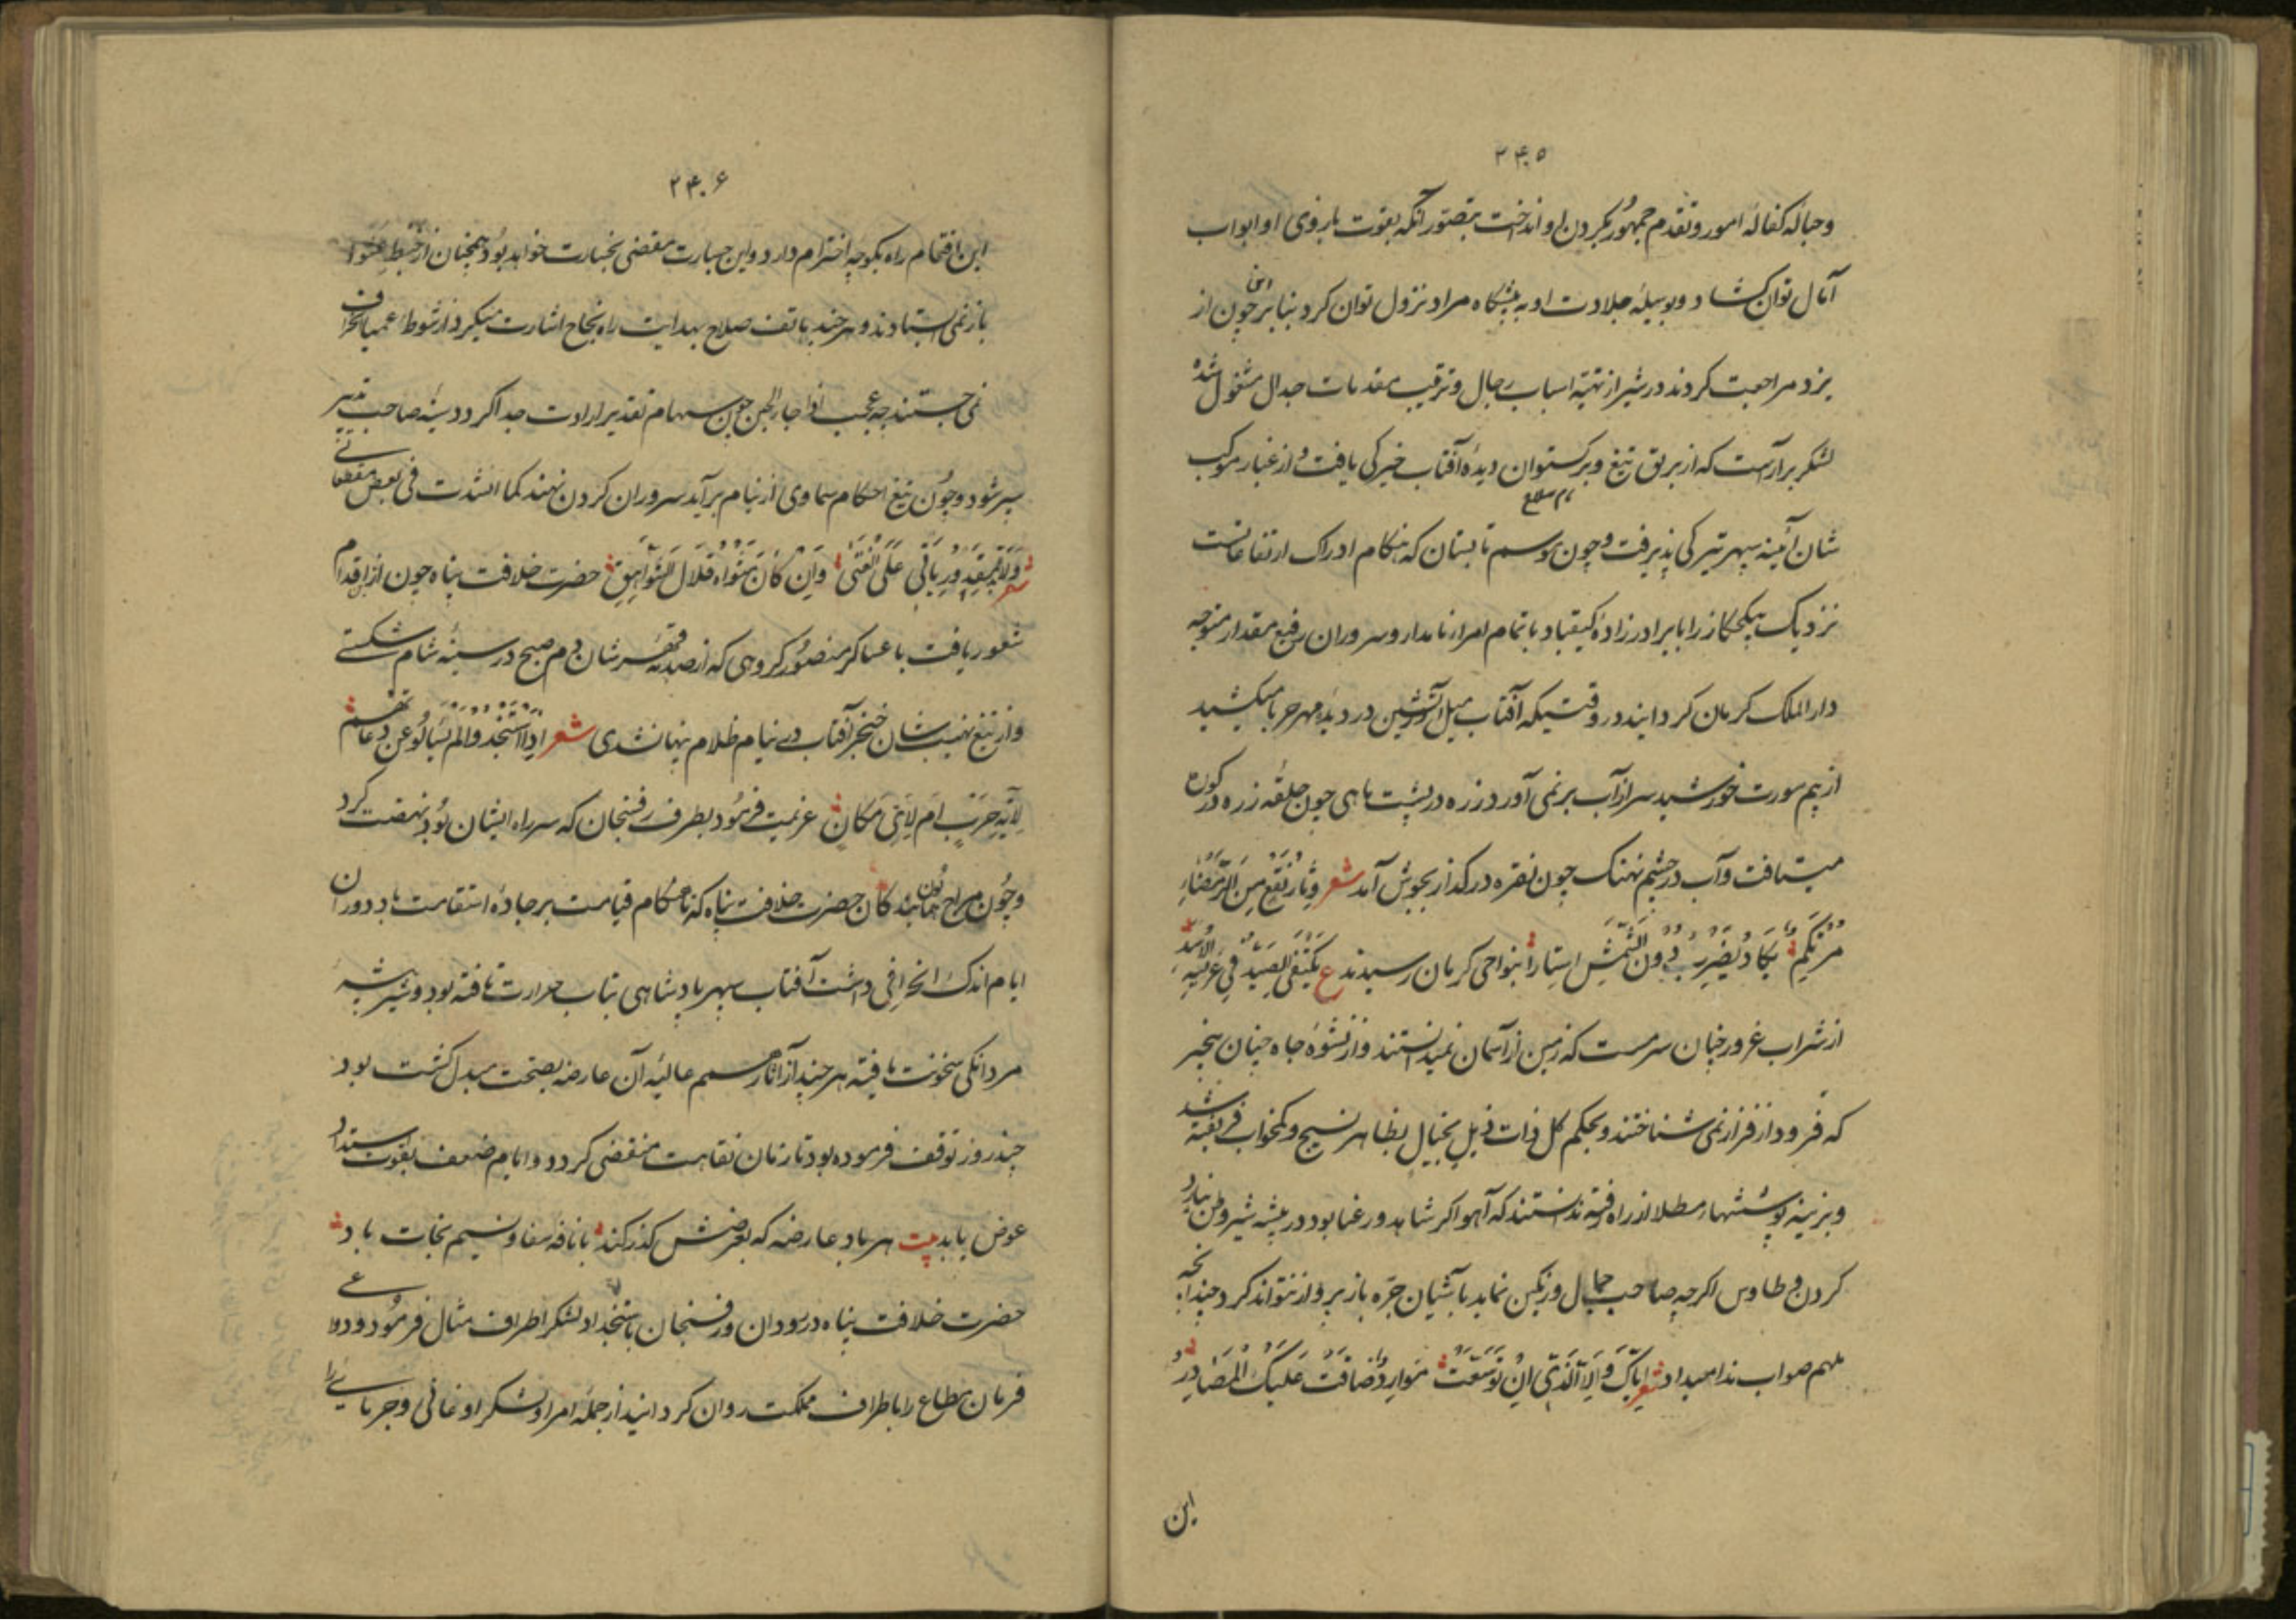 ۲۴۰۵
و حباله کفالهٔ امور و تقدم جمهور بکردن او انداخت بتصور آنکه بقوت بازوی او ابواب
آمال توان کشاد و بوسیلهٔ جلادت او به پیشکاه مراد نزول توان کرد بنابر این چون از
یزد مراجعت کردند در شیراز تهیهٔ اسباب رجال و ترتیب مقدمات جدال مشغول شده
لشکر برآراست که از بریق تیغ و برکستوان دیدهٔ آفتاب خیرکی یافت و از غبار موکب
شان آئینه سپهر تیرکی پذیرفت و چون موسم تابستان که هنکام ادراک ارتفاعاتست
نزدیک را با برادرزادهٔ کیقباد با تمام امراء نامدار و سروران رفیع مقدار متوجه
دار الملک کرمان کردانید در وقتیکه آفتاب میل آتشین در دیدهٔ مهر حربا میکشید
از بیم سورت خورشید سر از آب برنمی آورد زره در پشت ماهی چون حلقهٔ زره در کوره
میتافت و آب در چشم نهنک چون نقره در کداز بجوش آمد شعر وثار نقع من الرمضاء
مرتکم یکاد یضرب دون الشمس استارا بنواحی کرمان رسیدند ع یکتفی الصید فی عریسة الاسد
از شراب غرور چنان سرمست که زمین از آسمان نمیدانستند و از نشوهٔ جاه چنان بیخبر
که فرود از فراز نمی شناختند و بحکم کل ذات ذیل بخیال بظاهر نسیج و کمخواب فریفته شد
و بزینه پوششهاء مطلا از راه رفته ندانستند که آهو اکر شاهد و رعنا بود در بیشه شیر وطن نیارد
کردن و طاوس اکرچه صاحب جمال و رنکین نماید با آشیان جره باز پرواز نتواند کرد چندانچه
ملهم صواب ندا میداد شعر ایاک والامر الذی ان توسعت موارده ضاقت علیک المصادر
این
۲۴۰۶
این اقتحام راه بکوچهٔ اخترام دارد و این جسارت مقضی بخسارت خواهد بود همچنان از خبط عشوا
باز نمی ایستادند و هر چند هاتف صلاح بهدایت راه نجاح اشارت میکرد از شوط عمیا انحراف
نمی جستند چه عجب چون سهام تقدیر ارادت جدا کردد سینهٔ صاحب تدبیر
سپر شود و چون تیغ احکام سماوی از نیام برآید سروران کردن نهند کما انشدت فی بعض مقطعاتی
شعر علی الفتی وان کان مثواه قلال الشواهق حضرت خلافت پناه چون از اقدام
شعور یافت با عساکر منصور کروهی که از صدمهٔ شان دم صبح در سینهٔ شام شکستی
و از تیغ نهیب شان خنجر آفتاب در نیام ظلام پنهان شدی شعر اذا استنجدوا لم یسألوا عن دعاهم
لایة حرب ام لای مکان عزیمت فرمود بطرف رفسنجان که سر راه ایشان بود نهضت کرد
و چون مزاج همایون بندکان حضرت خلافت پناه که تا هنکام قیامت بر جادهٔ استقامت باد دوران
ایام اندک انحرافی داشت آفتاب سپهر پادشاهی بتاب حرارت تافته بود و شیر بیشهٔ
مردانکی سخونت یافته هر چند از آثار همم عالیه آن عارضه بصحت مبدل کشته بود
چند روز توقف فرموده بود تا زمان نقاهت منقضی کردد و ایام ضعف بقوت استبداد
عوض یابد بیت هر باد عارضه که بعرضش کذر کند با نافهٔ شفا و نسیم نجات باد
حضرت خلافت پناه در سودان و رفسنجان باستنجاد لشکر اطراف مثال فرمود و دواعی
فرمان مطاع را باطراف مملکت روان کردانید از جمله امراء لشکر اوغانی و جرمایی را